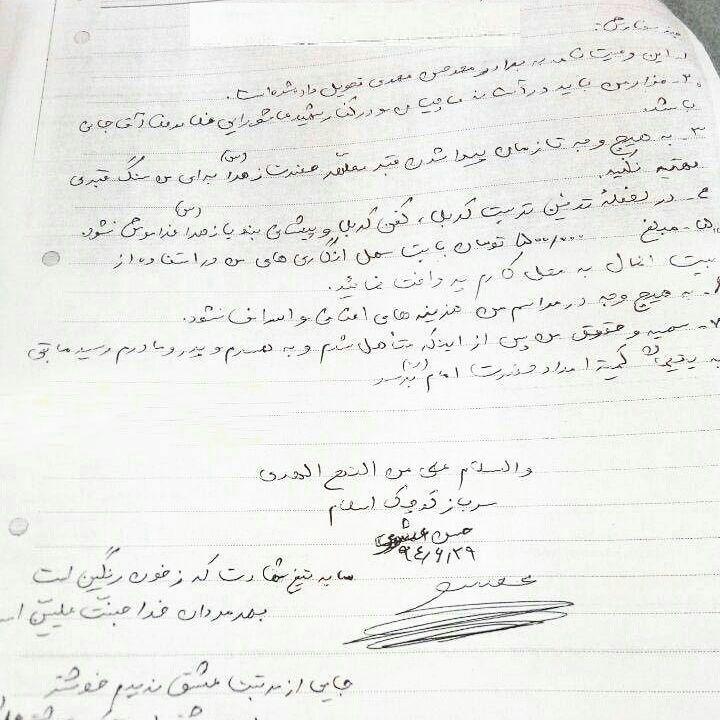 چند سفارش:
۱. این وصیت نامه به برادرم محسن مهدی تحویل داده شده است.
۲- مزار من باید در آستانه و در کنار شهید عاشورایی
باشد.
۳- به هیچ وجه تا زمان پیدا شدن قبر مطهر حضرت زهرا (س) برای من سنگ قبری
تهیه نکنید.
۴- در لحظهٔ تدفین تربت کربلا، کفن کربلا و پیشانی بند یا زهرا (س) فراموش نشود.
۵- مبلغ ۵۰۰/۰۰۰ تومان بابت سهل انگاری های من در استفاده از
بیت المال به محل کارم پرداخت نمائید.
۶- به هیچ وجه در مراسم من هزینه های اضافی و اسراف نشود.
۷- سهمیه و حقوق من پس از اینکه متأهل شدم و به همسرم و پدر و مادرم رسید مابقی
به کمیته امداد حضرت امام (ره) برسد
والسلام علی من التبع الهدی
سرباز کوچک اسلام
حسن عشوری
۹۴/۶/۲۹
سایه تیغ شهادت که ز خون رنگین است
بهر مردان خدا جنت علیین است
جایی از تربت عشق ندیدم خوشتر